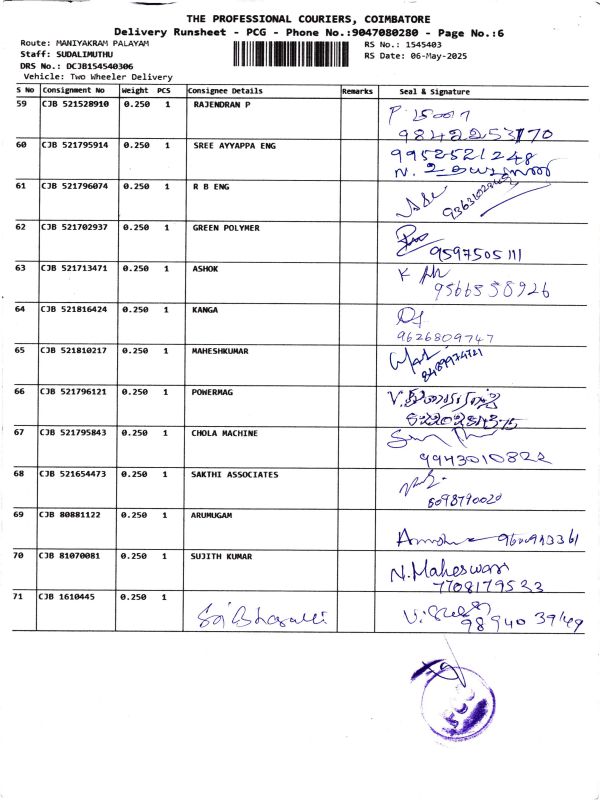 THE PROFESSIONAL COURIERS, COIMBATORE
Delivery Runsheet - PCG - Phone No.:9047080280 - Page No.:6
Route: MANIYAKRAM PALAYAM
RS No.: 1545403
Staff: SUDALIMUTHU
RS Date: 06-May-2025
DRS No.: DCJB154540306
Vehicle: Two Wheeler Delivery
S No Consignment No Weight PCS Consignee Details Remarks Seal & Signature
59 CJB 521528910 0.250 1 RAJENDRAN P
9842253170
60 CJB 521795914 0.250 1 SREE AYYAPPA ENG 9952521248
61 CJB 521796074 0.250 1 R B ENG
62 CJB 521702937 0.250 1 GREEN POLYMER
9597505111
63 CJB 521713471 0.250 1 ASHOK
9566558926
64 CJB 521816424 0.250 1 KANGA
9626809747
65 CJB 521810217 0.250 1 MAHESHKUMAR
8489974721
66 CJB 521796121 0.250 1 POWERMAG
67 CJB 521795843 0.250 1 CHOLA MACHINE
9943010822
68 CJB 521654473 0.250 1 SAKTHI ASSOCIATES
8098790020
69 CJB 80881122 0.250 1 ARUMUGAM
70 CJB 81070081 0.250 1 SUJITH KUMAR N.Maheswari
7708179533
71 CJB 1610445 0.250 1
98940 39149